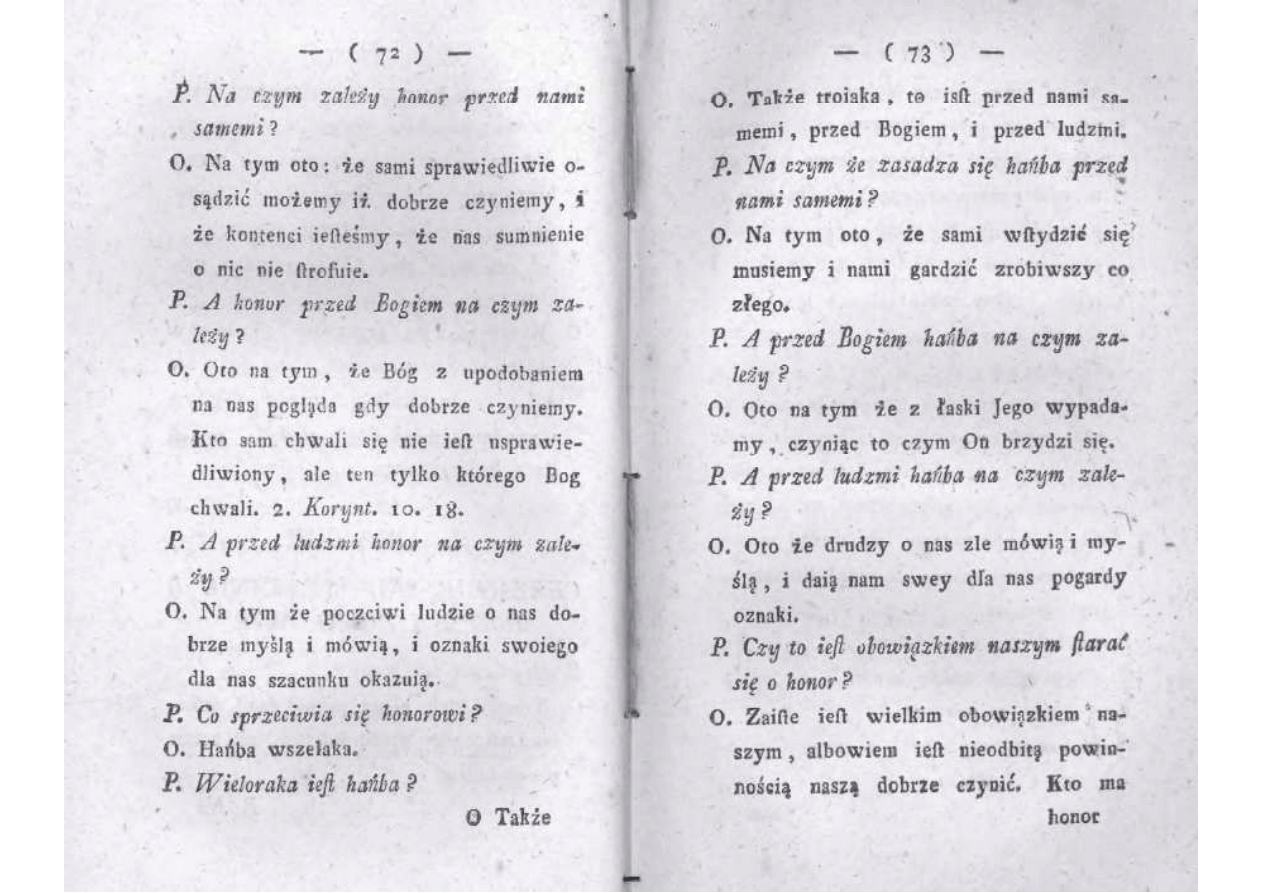 — ( 72 ) —
P. Na czym zależy honor przed nami
samemi ?
O. Na tym oto : że sami sprawiedliwie o-
sądzić możemy iż dobrze czyniemy , i
że kontenci ieſteśmy , że nas sumnienie
o nic nie ſtrofuie.
P. A honor przed Bogiem na czym za-
leży ?
O. Oto na tym , że Bóg z upodobaniem
na nas pogląda gdy dobrze czyniemy.
Kto sam chwali się nie ieſt usprawie-
dliwiony , ale ten tylko którego Bog
chwali. 2. Korynt. 10. 18.
P. A przed ludzmi honor na czym zale-
ży ?
O. Na tym że poczciwi ludzie o nas do-
brze myślą i mówią , i oznaki swoiego
dla nas szacunku okazuią.
P. Co sprzeciwia się honorowi ?
O. Hańba wszelaka.
P. Wieloraka ieſt hańba ?
O Także
— ( 73 ) —
O. Także troiaka , to isſt przed nami sa-
memi , przed Bogiem , i przed ludzmi.
P. Na czym że zasadza się hańba przed
nami samemi ?
O. Na tym oto , że sami wſtydzić się
musiemy i nami gardzić zrobiwszy co
złego.
P. A przed Bogiem hańba na czym za-
leży ?
O. Oto na tym że z łaski Jego wypada-
my , czyniąc to czym On brzydzi się.
P. A przed ludzmi hańba na czym zale-
ży ?
O. Oto że drudzy o nas zle mówią i my-
ślą , i daią nam swey dla nas pogardy
oznaki.
P. Czy to ieſt obowiązkiem naszym ſtarać
się o honor ?
O. Zaiſte ieſt wielkim obowiązkiem na-
szym , albowiem ieſt nieodbitą powin-
nością naszą dobrze czynić. Kto ma
honor